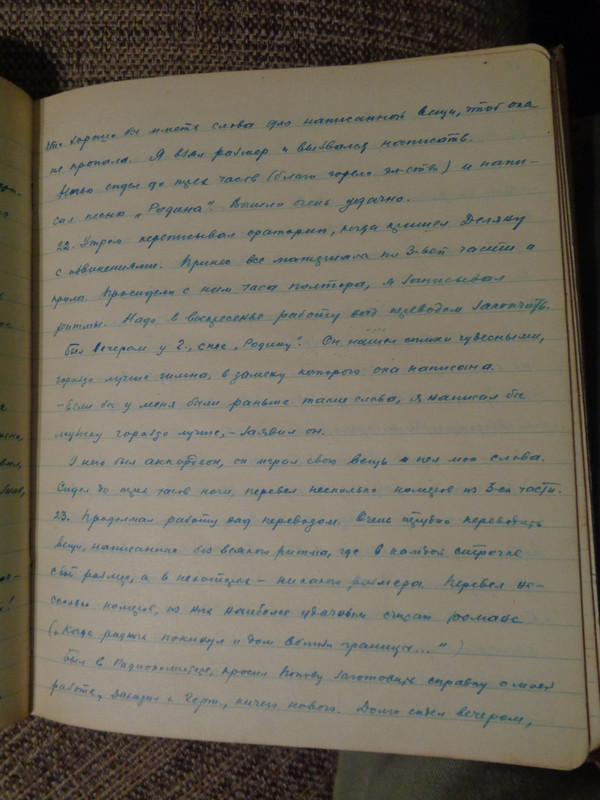 хорошо бы иметь слова для написанной вещи, чтоб она
не пропала. Я взял размер и вызвался написать.
Ночью сидел до трех часов (благо горело эл-ство) и напи-
сал песню „Родина". Вышло очень удачно.
22. Утром переписывал ораторию, когда пришел
с извинениями. Принес все материалы по 3-ьей части и
Просидели с ним часа полтора, я записывал
ритмы. Надо в воскресенье работу над переводом закончить.
Был вечером у Г., снес „Родину". Он нашел стихи чудесными,
гораздо лучше гимна, в замену которого она написана.
- Если бы у меня были раньше такие слова, я написал бы
музыку гораздо лучше, - заявил он.
У него был аккордеон, он играл свою вещь и пел мои слова.
Сидел до трех часов ночи, перевел несколько номеров из 3-ей части.
23. Продолжал работу над переводом. Очень трудно переводить
вещи, написанные без всякого ритма, где в каждой строчке
свой размер, а в некоторых - никакого размера. Перевел не-
сколько номеров, из них наиболее удачным считаю романс
(„Когда родных покинул я дом границы...")
Был в Радиокомитете, просил заготовить справку о моей
работе, и Герш., ничего нового. Долго сидел вечером,